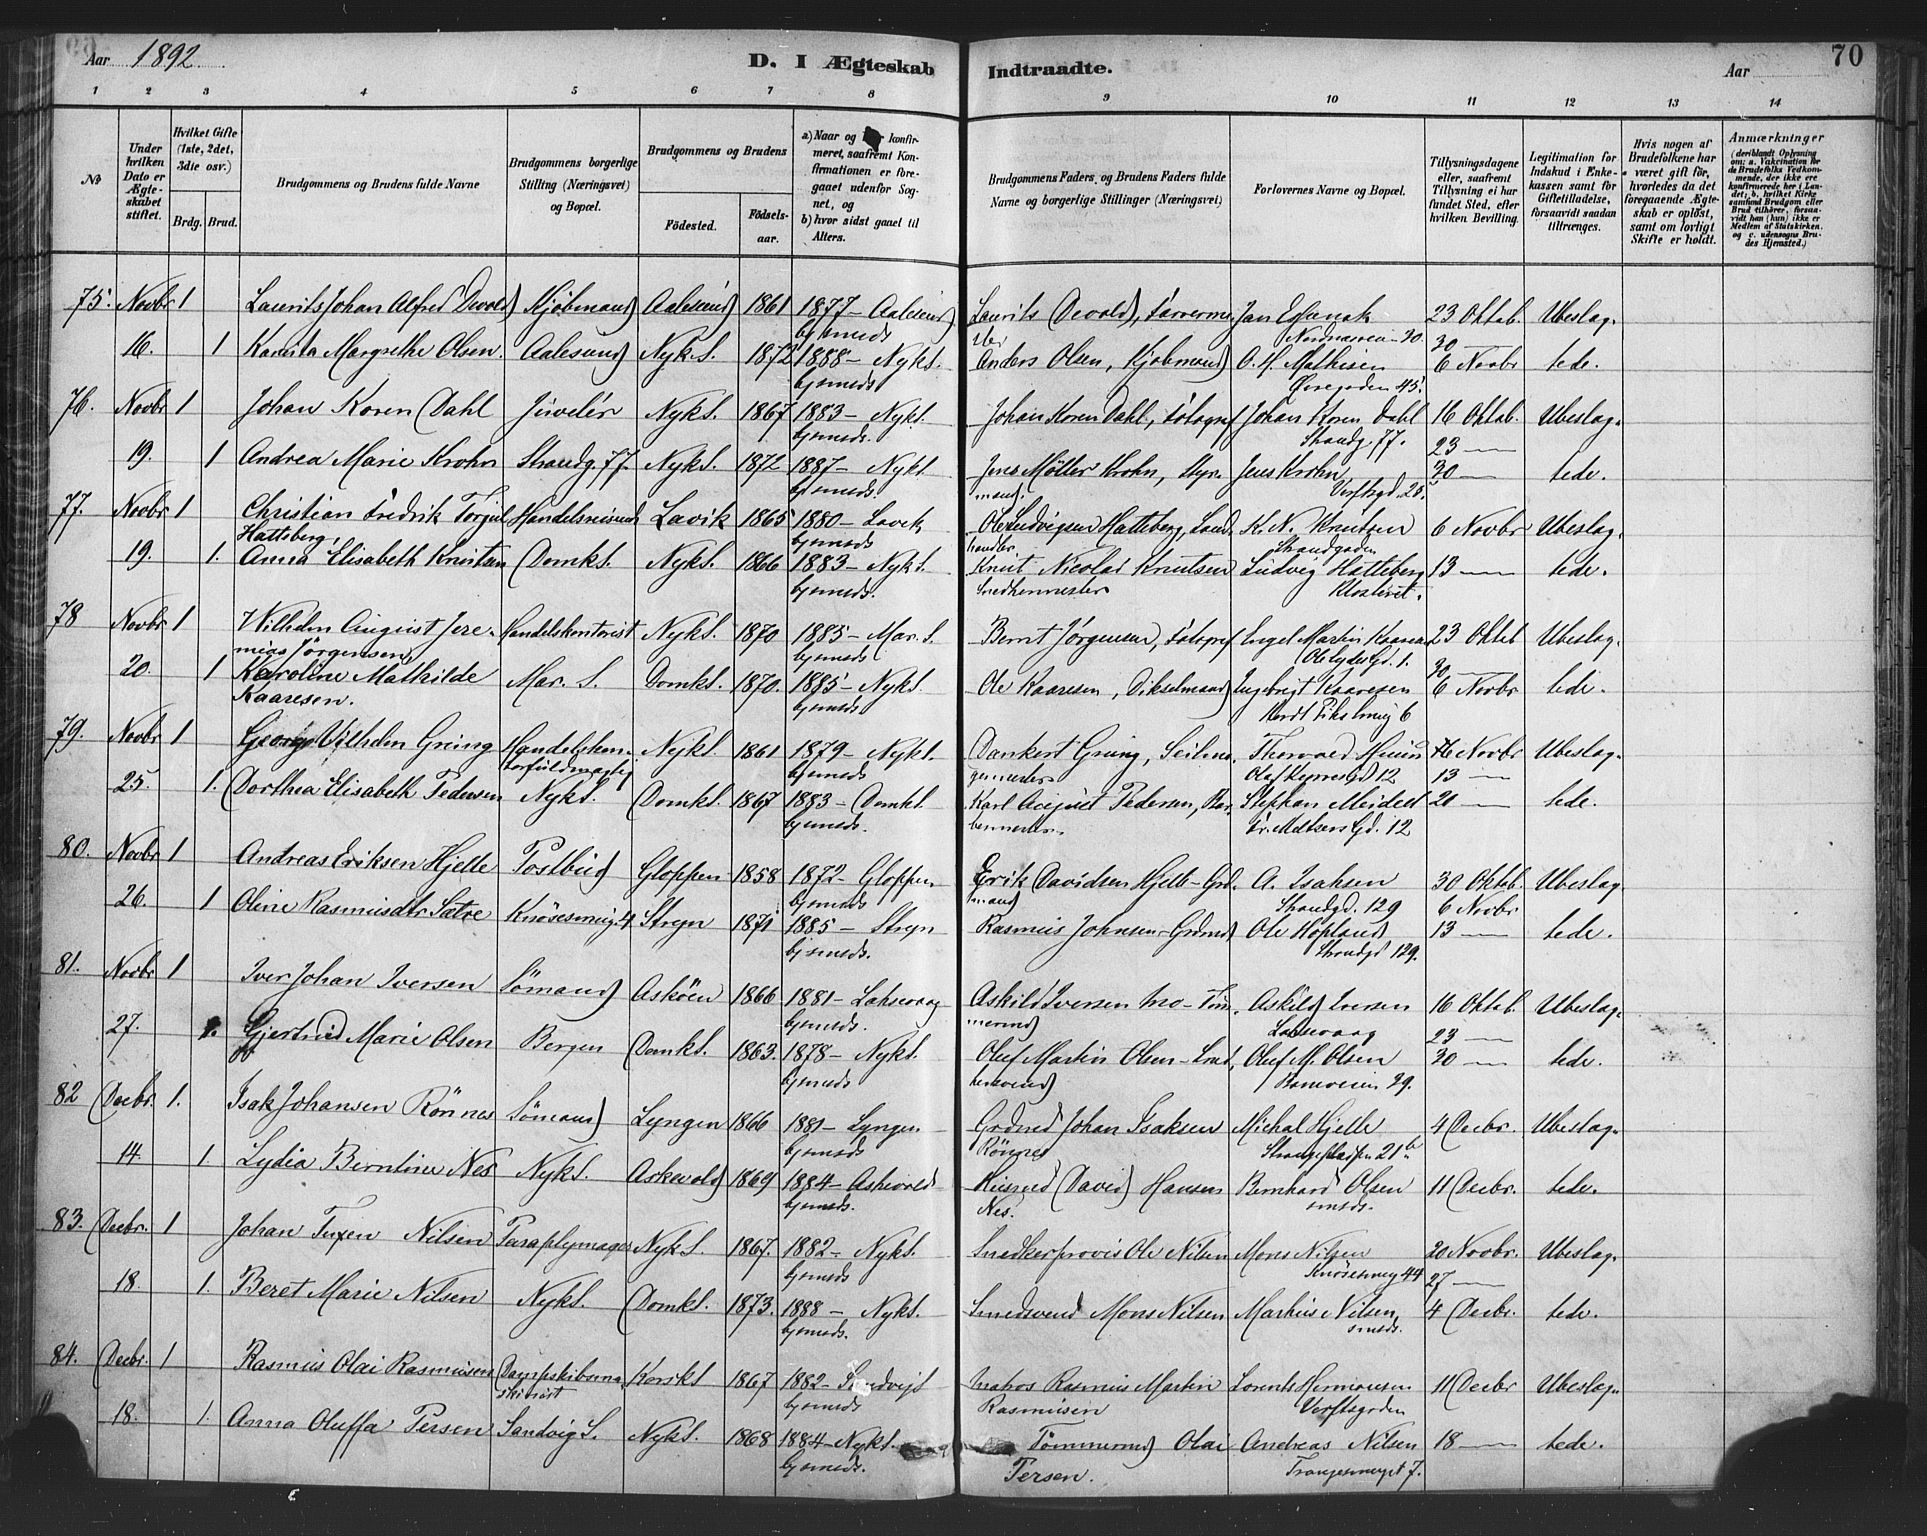 Aar 1892.
D. I Ægteskab Indtraadte.
Aar
70
1 2 3 4 5 6 7 8 9 10 11 12 13 14
No
Under hvilken Dato er Ægteskabet stiftet.
Hvilket Gifte (1ste, 2det, 3die osv.)
Brdg. Brud.
Brudgommens og Brudens fulde Navne
Brudgommens borgerlige Stilling (Næringsvei) og Bopæl.
Brudgommens og Brudens
Födested.
Födselsaar.
a) Naar og konfirmeret, saafremt Konfirmationen er foregaaet udenfor Sognet, og
b) hvor sidst gaaet til Alters.
Brudgommens Faders, og Brudens Faders fulde Navne og borgerlige Stillinger (Næringsvei)
Forlovernes Navne og Bopæl.
Tillysningsdagene eller, saafremt Tillysning ei har fundet Sted, efter hvilken Bevilling.
Legitimation for Indskud i Enkekassen samt for Giftetilladelse, forsaavidt saadan tiltrænges.
Hvis nogen af Brudefolkene har været gift før, hvorledes da det foregaaende Ægteskab er opløst, samt om lovligt Skifte er holdt.
Anmærkninger (deriblandt Oplysning om: a. Vakcination for de Brudefolks Vedkommende, der ikke ere konfirmerede her i Landet; b. hvilket Kirkesamfund Brudgom eller Brud tilhörer, forsaavidt han (hun) ikke er Medlem af Statskirken, og c. udensogns Brudes Hjemsted.)
75. Novbr 1 Laurits Johan Alfred Devold Kjøbmand Aalesund 1861 1877 - Aalesund Laurits Devold, Farvermester 23 Oktob. Ubeslag-
bjemeds
16. 1 Kamita Margrethe Olsen. Aalesund Nyks. 1872 1888 - Nyks. Anders Olsen, Kjøbmand O. H. Mathisen 30 — 6 Novbr tede.
bjemeds Øvregaden 45.
76. Novbr 1 Johan Koren Dahl Juvelér Nyks. 1867 1883 - Nyks. Johan Koren Dahl, Fotograf Johan Koren Dahl 16 Oktob. Ubeslag-
bjemeds. Strandg. 77. 23 —
19. 1 Andrea Marie Krohn Strandg. 77. Nyks. 1872 1887 - Nyks. Jens Møller Krohn, Styrmand. Jens Krohn 30 — tede.
bjemeds. Verftsgd. 25.
77. Novbr 1 Christian Fredrik Torjul Hatteberg, Handelsreisende Lavik 1865 1880 - Lavik Ole Ludvigsen Hatteberg, Landhandler K. N. Knutsen 6 Novbr Ubeslag-
bjemeds Strandgaden
19. 1. Anna Elisabeth Knutsen Domks. Nyks. 1866 1883 - Nyks. Knut Nicolai Knutsen Snedkermester Ludvig Hatteberg 13 — tede.
bjemeds. Klosteret.
78 Novbr 1 Wilhelm August Jeremias Jörgensen, Handelskontorist Nyks. 1870 1885 - Mar. S. Bernt Jørgensen, Fotograf Engel Martin Kaaresen 23 Oktob Ubeslag-
bjemeds.
20. 1 Karoline Mathilde Kaaresen. Mar. S. Domks. 1870. 1885 - Nyks. Ole Kaaresen, Dikselmand Ingebrigt Kaaresen 30 — 6 Novbr tede.
bjemeds
79. Novbr 1 Georg Vilhelm Gring Nyks. 1861 1879 - Nyks. Dankert Gring, Seilmagermester 6 Novbr Ubeslag-
bjemeds 13 —
25. 1. Dorthea Elisabeth Pedersen Nyks. Domks. 1867 1883 - Domks. Karl August Pedersen, Barbermester Stephan Meidell 20 — tede.
bjemeds. Fr. Meltzers Gd. 12
80. Novbr 1 Andreas Eriksen Hjelle Postbud Gloppen 1858 1872 - Gloppen Erik Davidsen Hjelle - Grdmand A. Isaksen 30 Oktob. Ubeslag-
bjemeds Strandgd. 129 6 Novbr
26. 1 Oline Rasmusdtr Sætre Knösesmug 4 Stryn 1871 1885 - Stryn Rasmus Johnsen - Grdmd Ole Hopland 13 — tede.
bjemeds. Strandgd 129.
81. Novbr 1 Iver Johan Iversen Sömand Asköen 1866 1881 - Laksevaag Askild Iversen Mo - Tömmermd Askild Iversen 16 Oktob. Ubeslag-
bjemeds. Laksevaag 23 —
27. 1. Gjertrud Marie Olsen Bergen Domks. 1863. 1878 - Nyks. Oluf Martin Olsen Oluf M. Olsen 30 — tede.
bjemeds
82 Decbr. 1. Isak Johansen Rönnes Sömand Lyngen 1866 1881 - Lyngen Grdmd Johan Isaksen Rönnes Michal Hjelle 4 Decbr. Ubeslag-
bjemeds
14. 1. Lydia Berntine Nes Nyks. Askevold 1869 1884 - Askevold Husmd David Hansen Nes. Bernhard Olsen 11 Decbr. tede.
bjemeds. smeds.
83. Decbr. 1 Johan Tuxen Nilsen Paraplymager Nyks. 1867. 1882 - Nyks. Snedkerprovis Ole Nilsen Mons Nilsen 20 Novbr. Ubeslag-
bjemeds Knösesmug 44 27 —
18. 1. Beret Marie Nilsen Nyks. Domks. 1873. 1888 - Nyks. Smedsvend Mons Nilsen Markus Nilsen 4 Decbr. tede.
bjemeds. smeds.
84. Decbr. 1 Rasmus Olai Rasmussen Korsks 1867 1882 - Sandvigs Matros Rasmus Martin Rasmussen Lorents Hermansen 11 Decbr Ubeslag-
bjemeds Verftsgaden
18. 1. Anna Oluffa Persen Sandvig S. Nyks. 1868 1884 - Nyks. Tömmermd Olai Persen. Andreas Nilsen 18 — tede.
bjemeds.